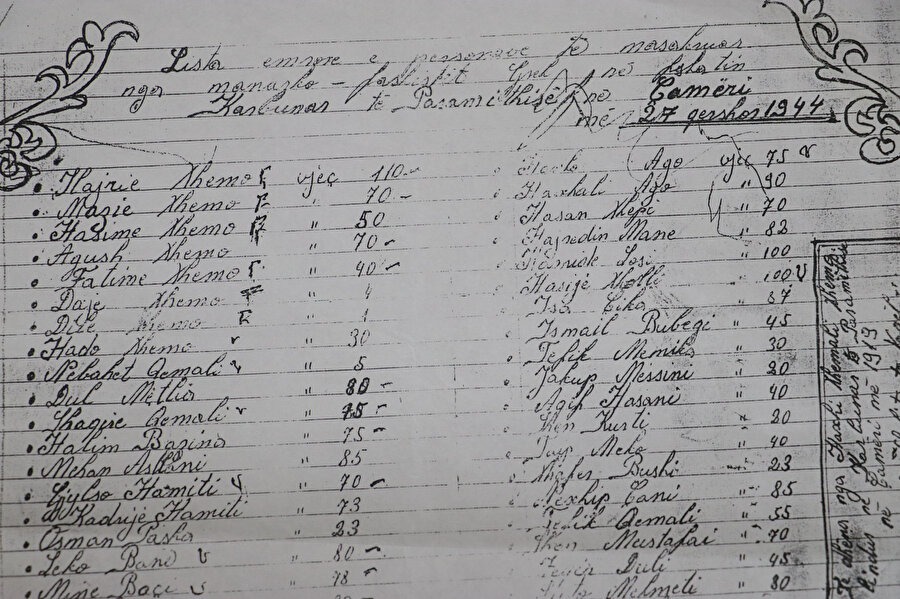 Lista emrore e personave të masakruar
nga monarko - fashistit Grek në fshatin
Karbunar të Paramithisë në Çamëri
me 27 qershor 1944
Hajrie Xhemo F vjeç 110
Masie Xhemo F " 70
Hasime Xhemo F " 50
Agush Xhemo " 70
Fatime Xhemo F " 40
Daje Xhemo F " 4
Dile Xhemo F " 1
Hado Xhemo v " 30
Nebahet Qemali v " 5
Dul Metlia " 80
Shaqire Qemali v " 75
Halim Bazina " 75
Mehan Asllani " 85
Gylso Hamiti v " 70
Kadrije Hamiti " 73
Osman Pasha " 23
Leko Bani v " 80
Mine Baçi v " 78
Ago vjeç 75 v
Haxhali Ago " 90
Hasan Xhepi " 70
Hajredin Mane " 82
" 100
Hasije Xholli " 100 v
Isa " 87
Ismail Bubeqi " 45
Tefik Memika " 30
Jakup Messini " 20
Agip Hasani " 40
Xhen Kurti " 20
Meko " 40
Xhafer Bushi " 23
Nexhip Çani " 85
Refik Qemali " 55
Xhen Mustafai " 70
Duli " 45
Mehmeti " 80
Të dhëna nga Haxhi Xhemali Xhemo
lindur në Karbunar të Paramithisë
Çamëri në 1919